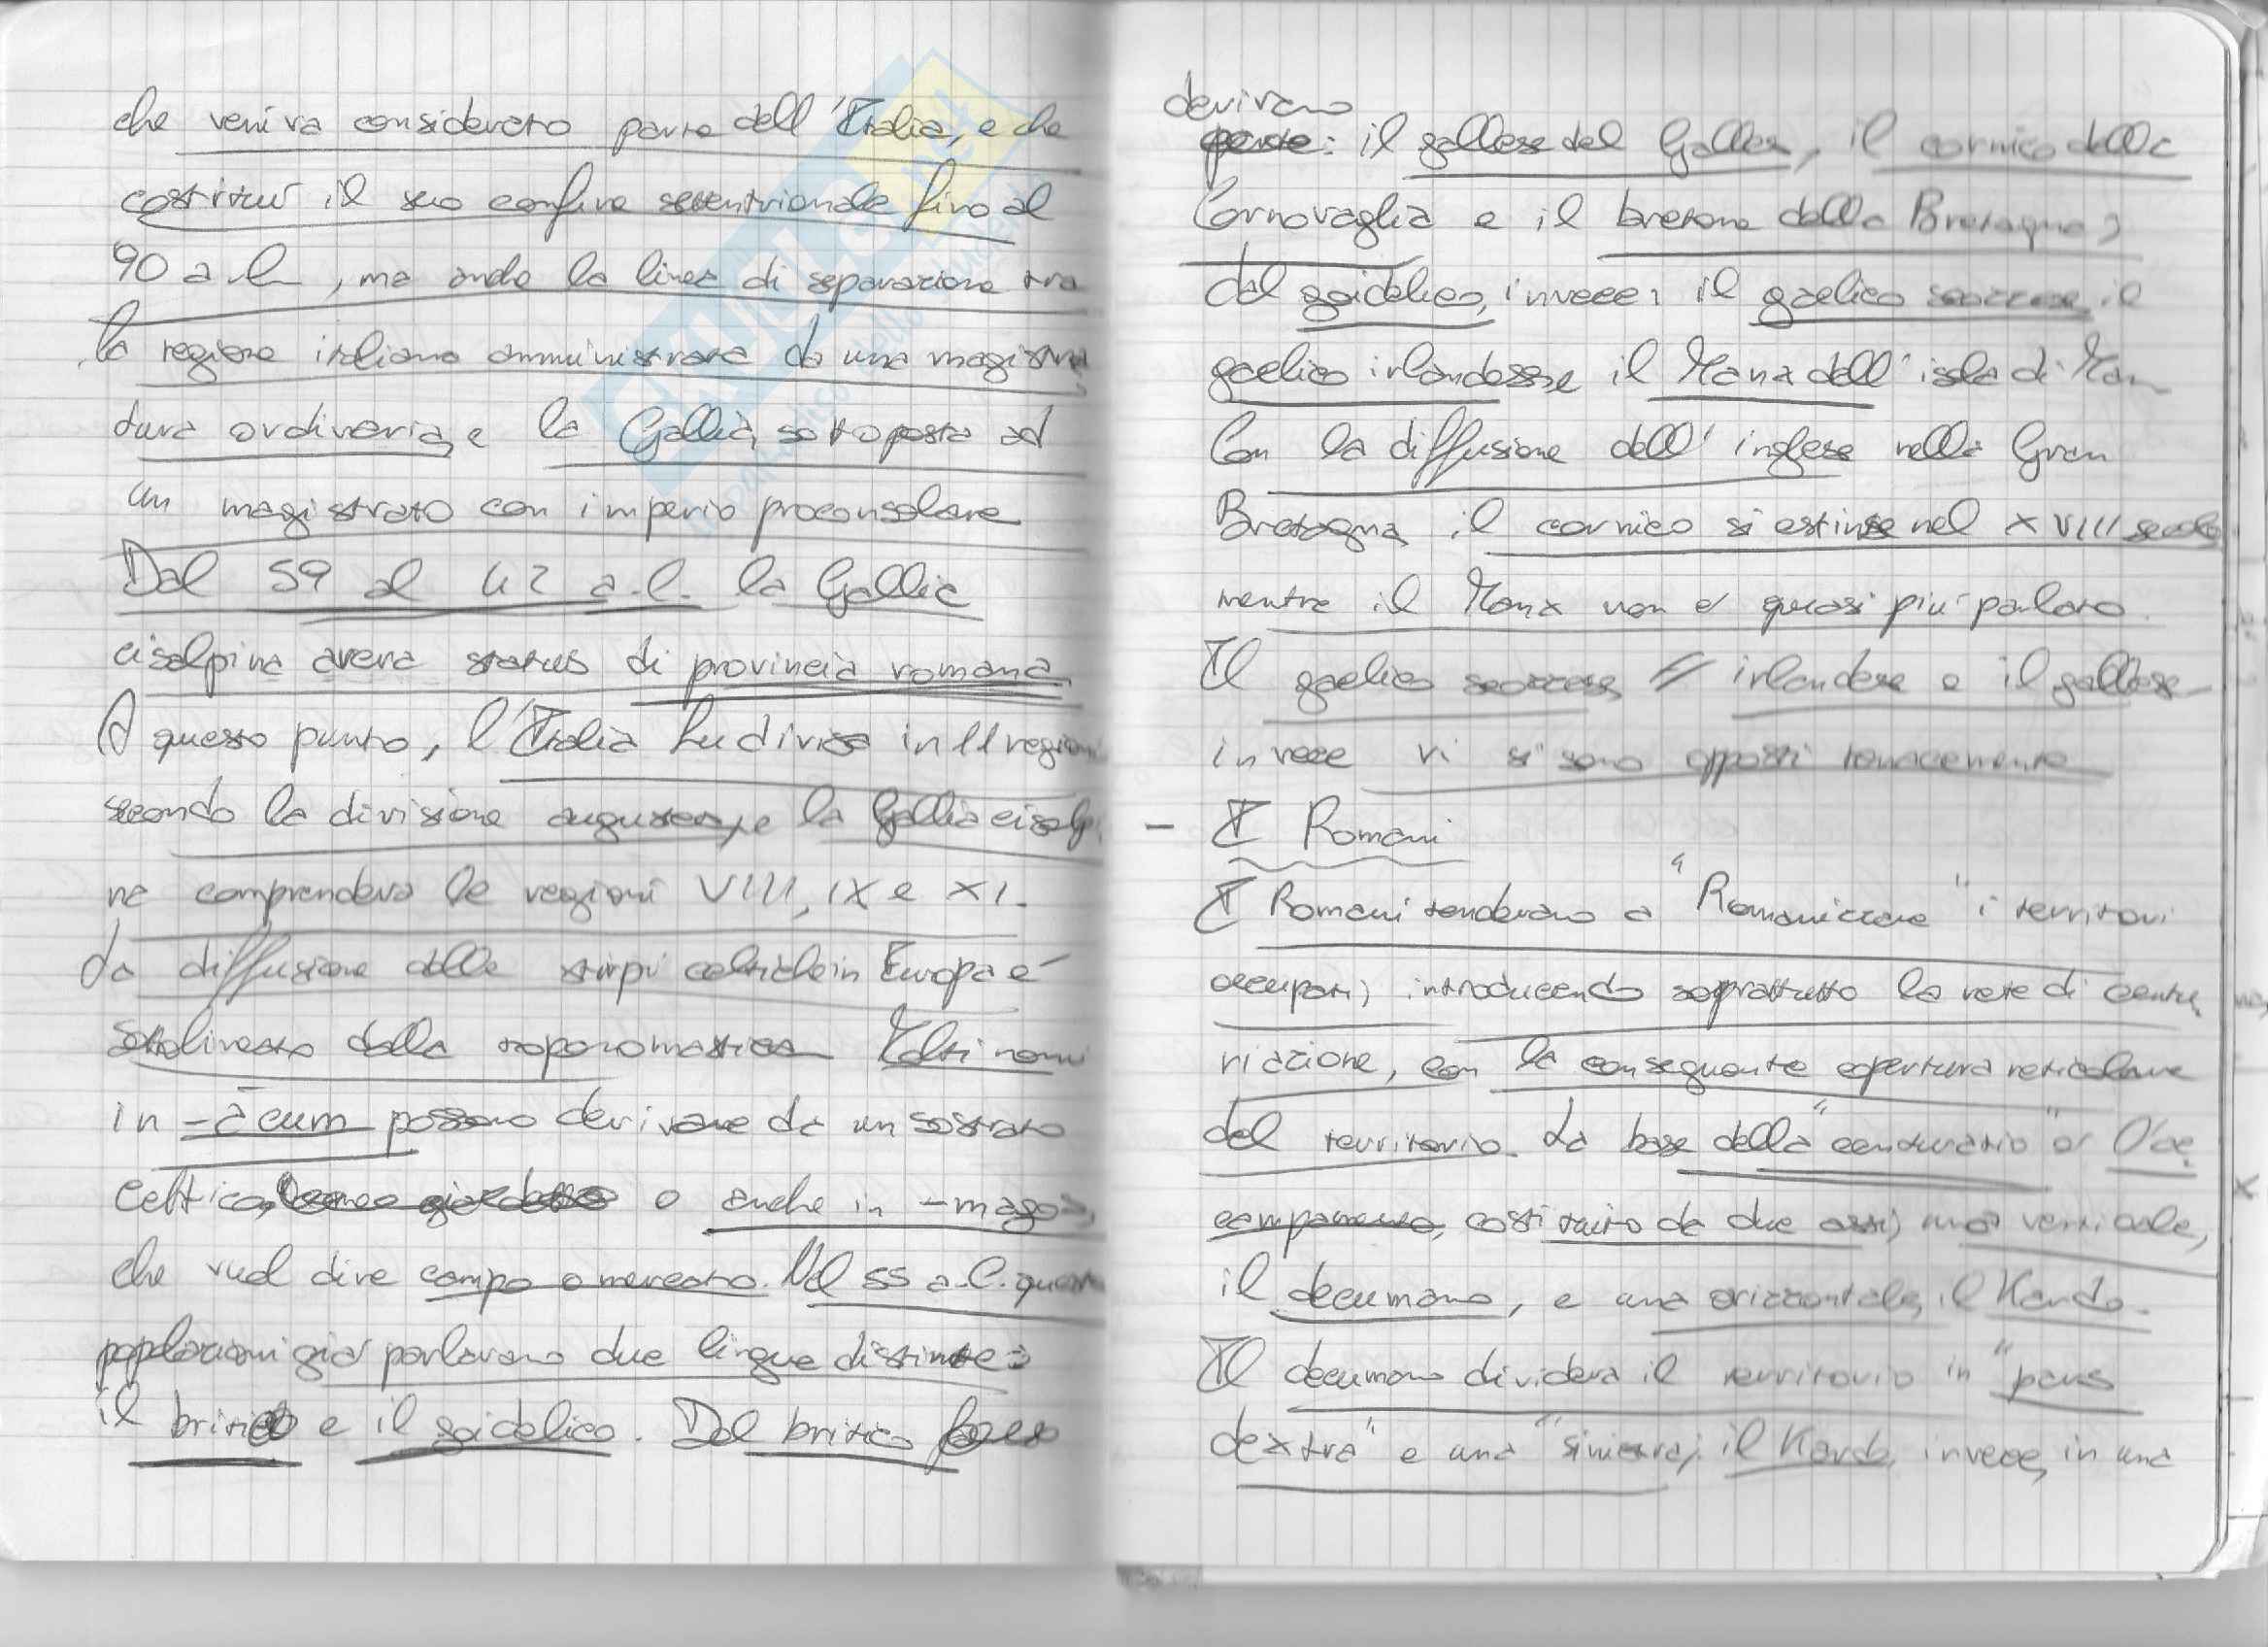 che veniva considerato parte dell'Italia, e che
costituì il suo confine settentrionale fino al
90 a.C., ma anche la linea di separazione tra
la regione italiana amministrata da una magistra
tura ordinaria, e la Gallia, sottoposta ad
un magistrato con imperio proconsolare
Dal 59 al 42 a.C. la Gallia
cisalpina aveva status di provincia romana.
A questo punto, l'Italia fu divisa in 11 regioni
secondo la divisione augustea, e la Gallia cisalpi
na comprendeva le regioni VIII, IX e XI.
La diffusione delle stirpi celtiche in Europa è
sottolineata dalla toponomastica Molti nomi
in -ācum possono derivare da un sostrato
celtico, o anche in -magos,
che vuol dire campo o mercato. Nel 55 a.C. queste
popolazioni già parlavano due lingue distinte:
il britico e il goidelico. Dal britico
derivano
il gallese del Galles, il cornico della
Cornovaglia e il bretone della Bretagna;
dal goidelico, invece: il gaelico scozzese, il
gaelico irlandese e il Manx dell'isola di Man
Con la diffusione dell'inglese nella Gran
Bretagna il cornico si estinse nel XVIII secolo
mentre il Manx non è quasi più parlato.
Il gaelico scozzese, // irlandese e il gallese
invece vi si sono opposti tenacemente
- I Romani
I Romani tendevano a "Romanizzare" i territori
occupati, introducendo soprattutto la rete di centu
riazione, con la conseguente copertura reticolare
del territorio. La base della "centuratio" è l'ac
campamento, costituito da due assi, una verticale,
il decumano, e una orizzontale, il Kardo.
Il decumano divideva il territorio in "pars
dextra" e una "sinistra"; il Kardo, invece, in una